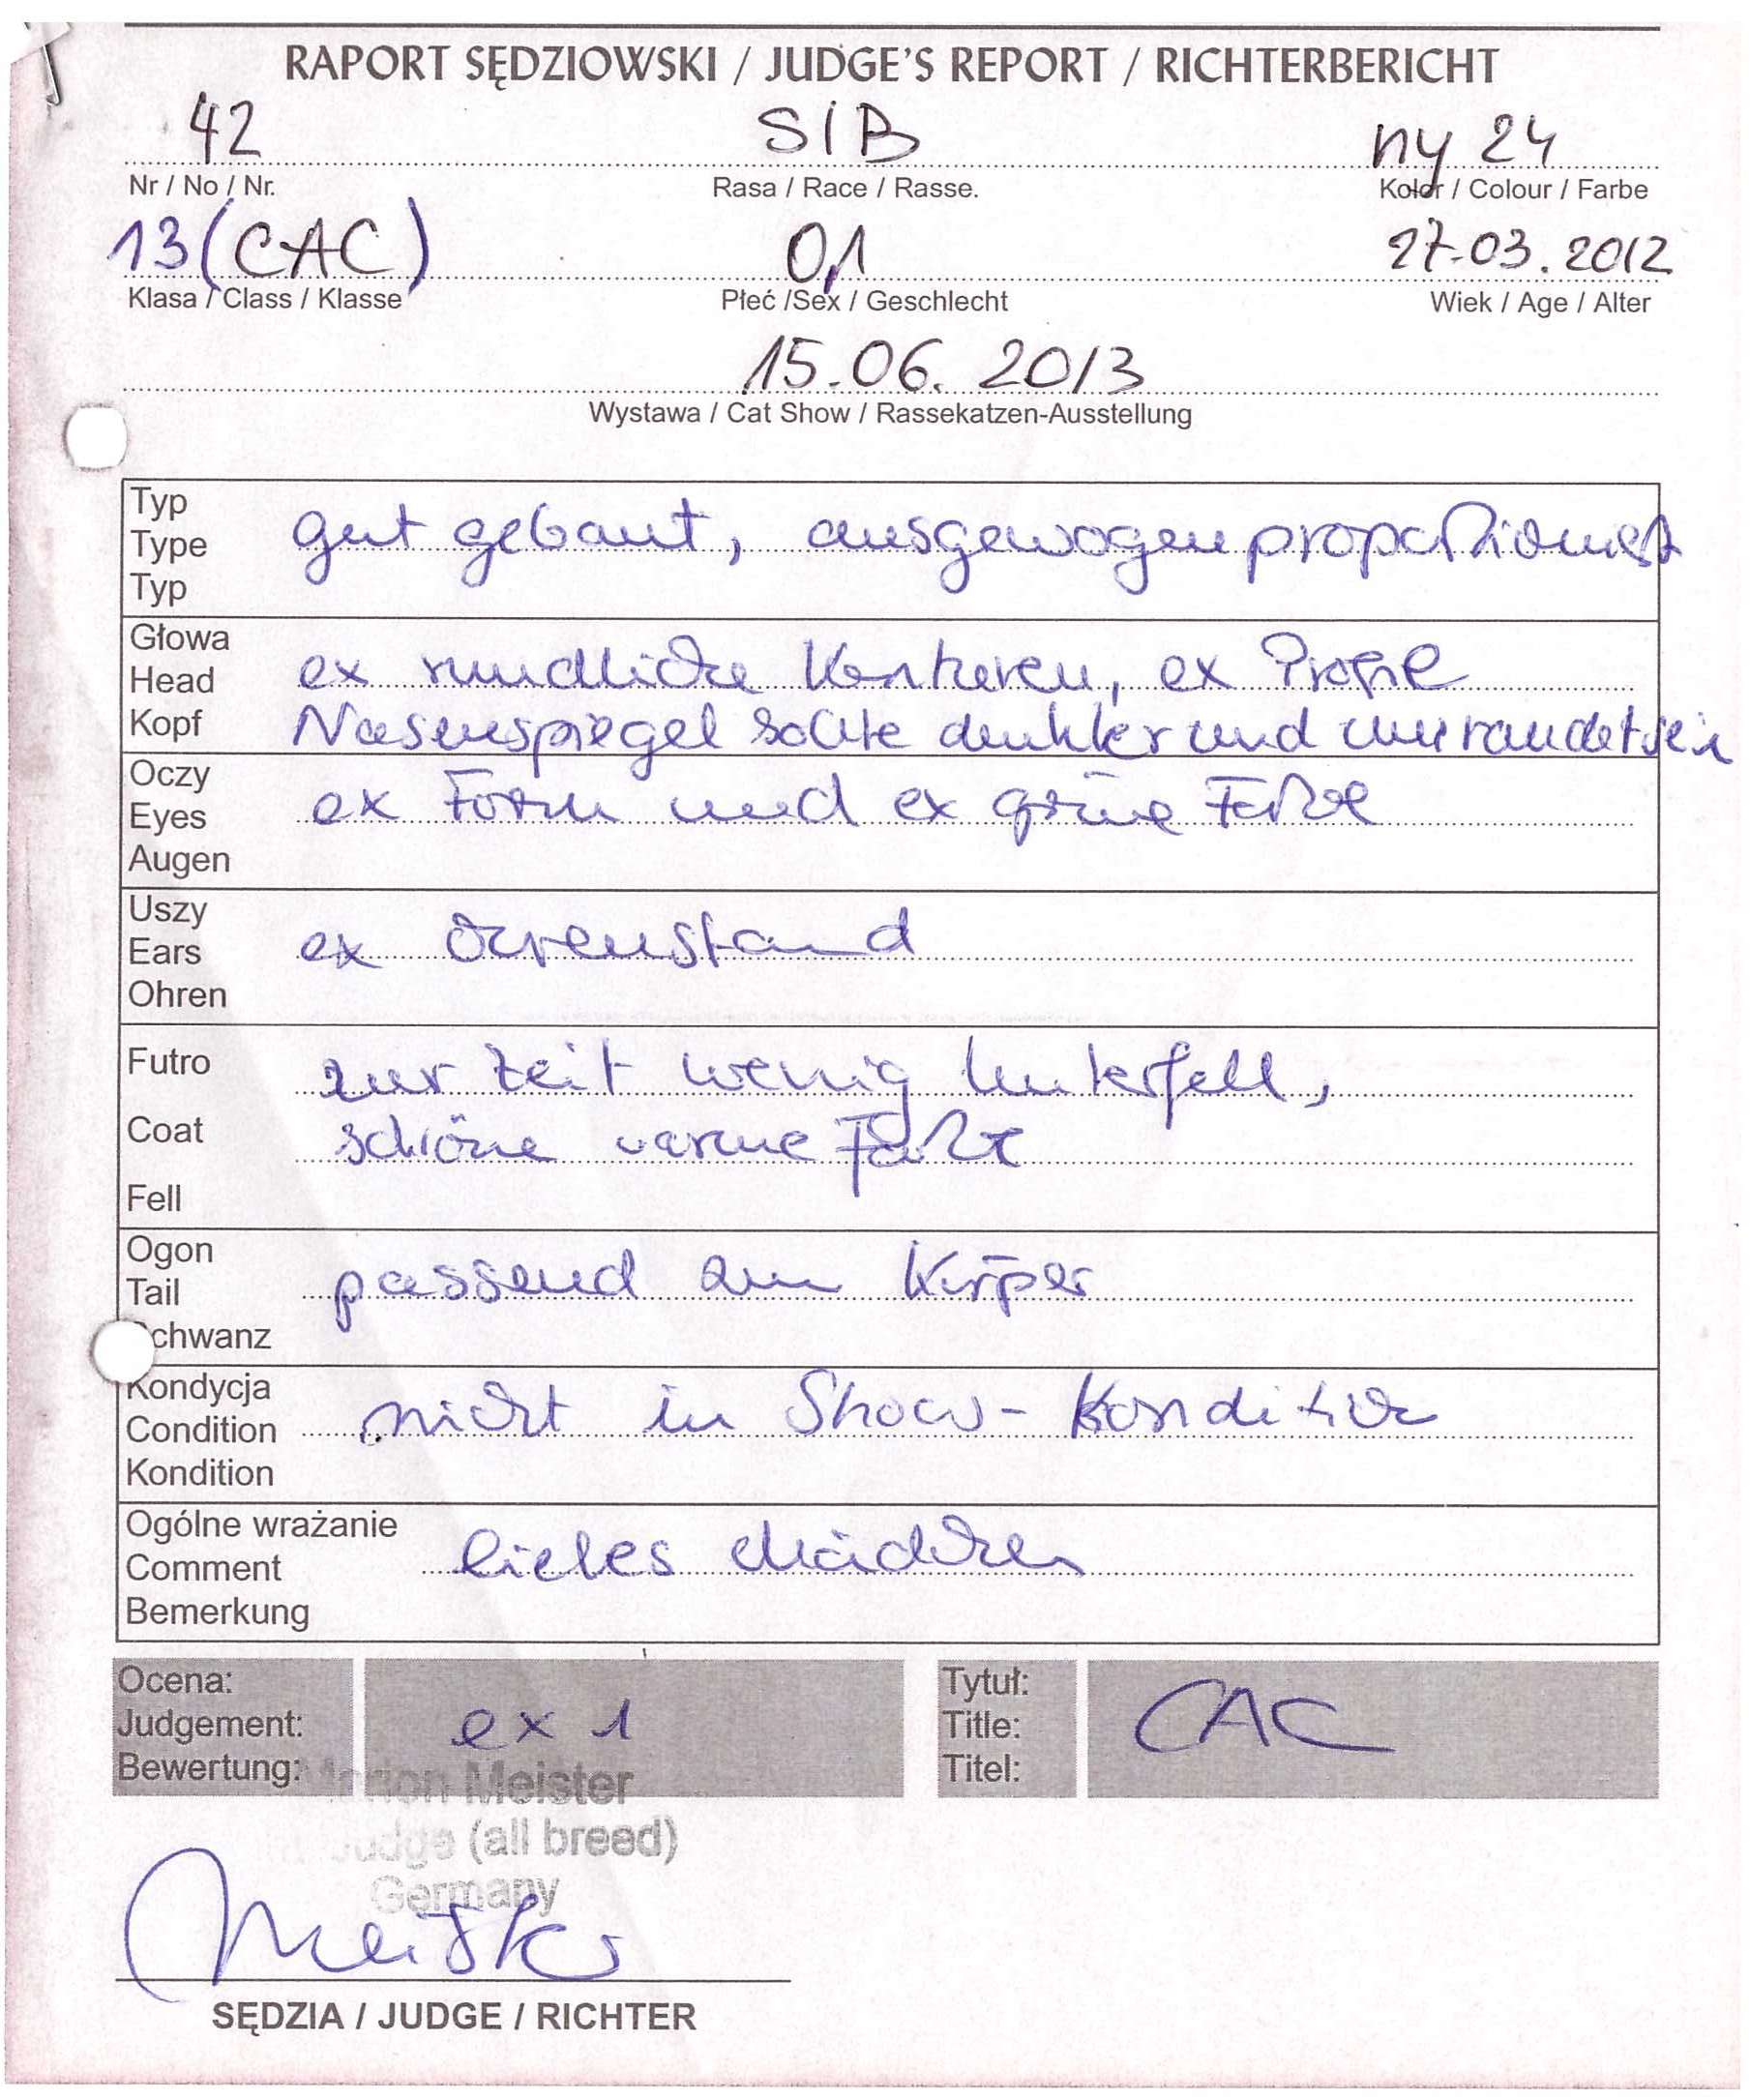 RAPORT SĘDZIOWSKI / JUDGE'S REPORT / RICHTERBERICHT
42 SIB ny 24
Nr / No / Nr. Rasa / Race / Rasse. Kolor / Colour / Farbe
13 (CAC) 0,1 27.03.2012
Klasa / Class / Klasse Płeć /Sex / Geschlecht Wiek / Age / Alter
15.06.2013
Wystawa / Cat Show / Rassekatzen-Ausstellung
Typ
Type gut gebaut, ausgewogen proportioniert
Typ
Głowa
Head ex rundliche Konturen, ex Profil
Kopf Nasenspiegel sollte dunkler und umrandet sein
Oczy
Eyes ex Form und ex grüne Farbe
Augen
Uszy
Ears ex Ohrenstand
Ohren
Futro zur Zeit wenig Unterfell,
Coat schöne warme Farbe
Fell
Ogon
Tail passend zum Körper
chwanz
Kondycja
Condition nicht in Show-Kondition
Kondition
Ogólne wrażanie
Comment liebes Mädchen
Bemerkung
Ocena: Tytuł:
Judgement: ex 1 Title: CAC
Bewertung: Titel:
Marion Meister
Judge (all breed)
Germany
Meister
SĘDZIA / JUDGE / RICHTER